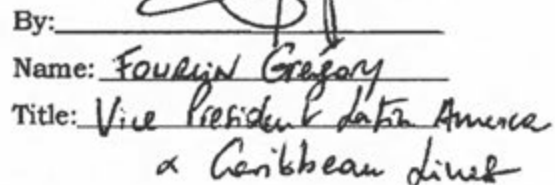 By:
Name: Fourlin Gregory
Title: Vice President Latin America
& Caribbean Lines